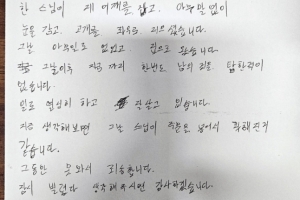 한 스님이 제 어깨를 잡고. 아무말 없이
눈을 감고. 고개를 좌우로
그날 아무일도 없었고. 집으로 왔습니다
그날이후 지금까지 한번도 남의 리을 탐한적이
없습니다.
일도 열심히 하고 잘살고 있습니다.
지금 생각해보면 그날 스님이
같습니다.
그동안 못와서 죄송합니다.
잠시 빌렸다 생각해주시면 감사하겠습니다.